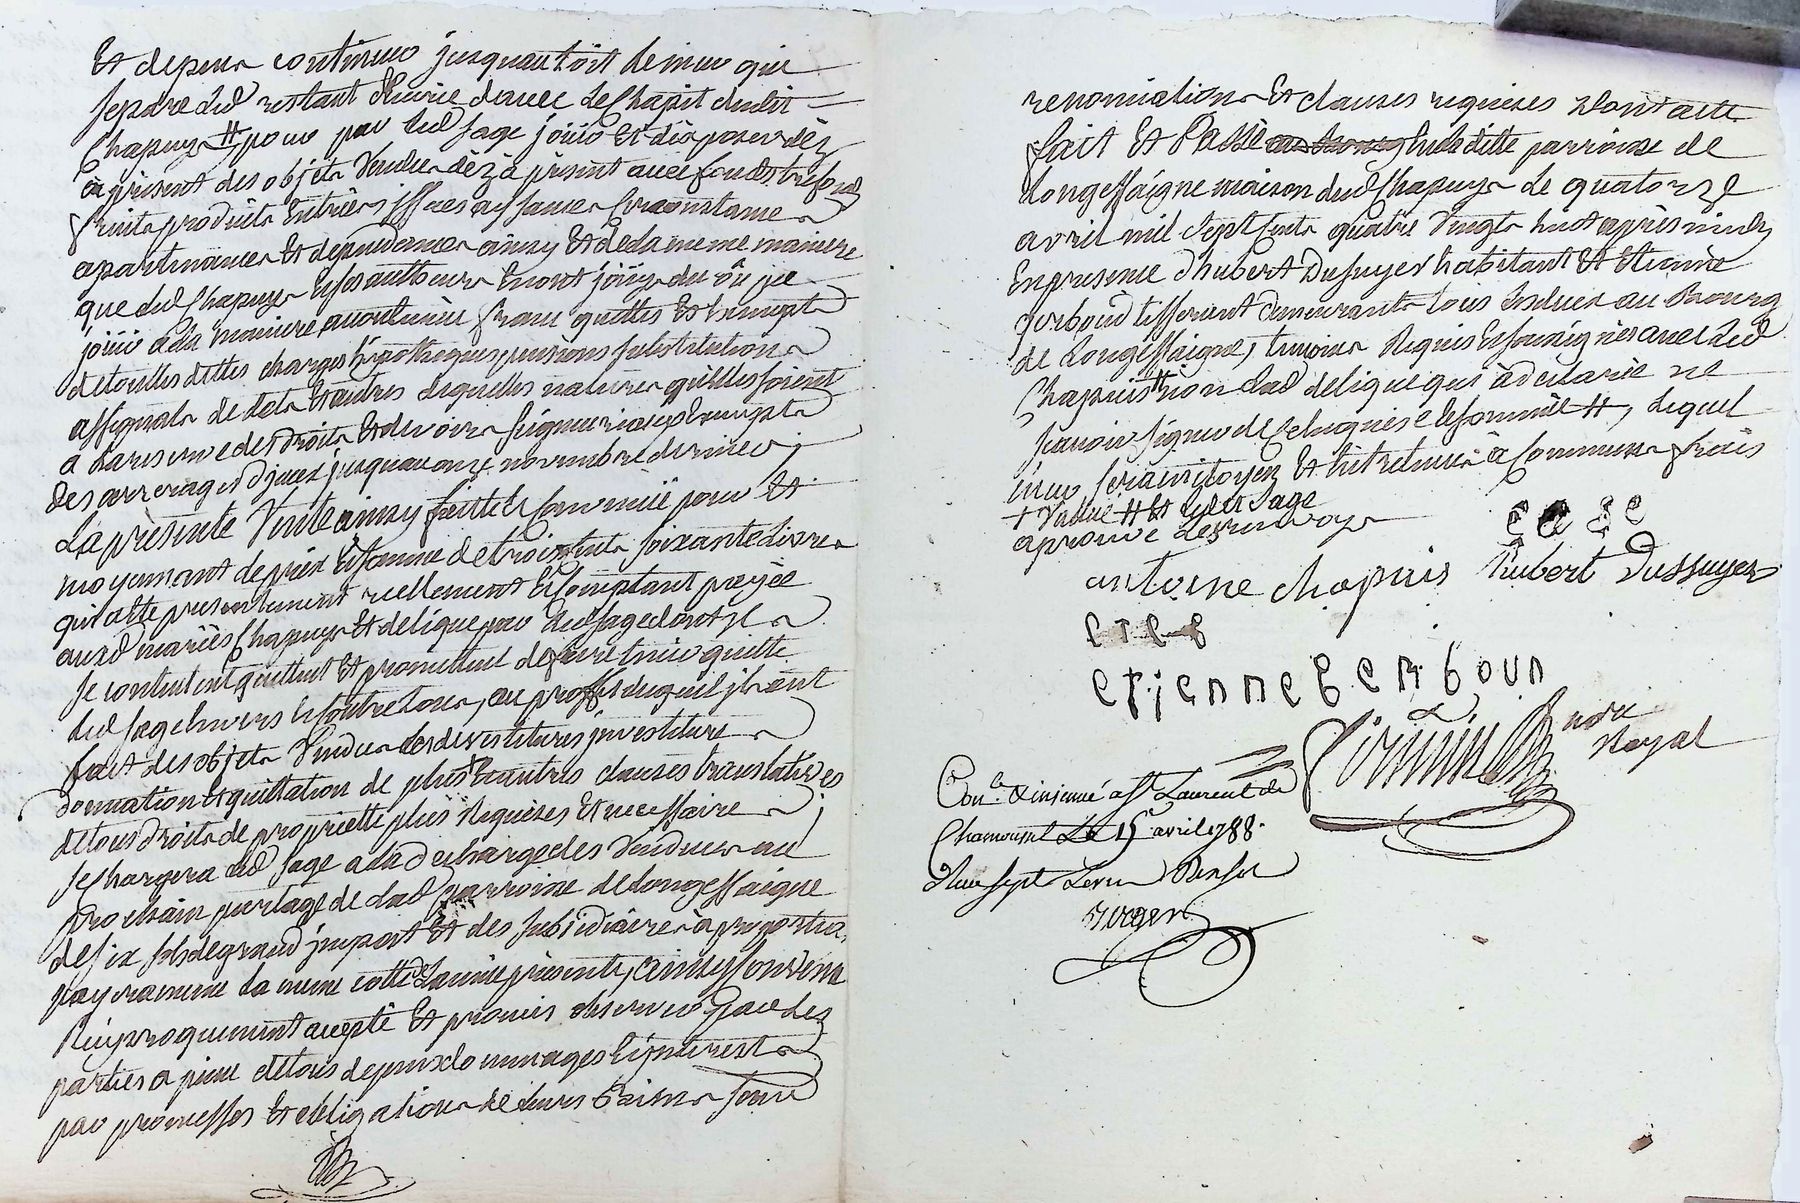 Et depuis continuer jusquau toit le mur qui
separe dud restant decurie davec le Chapit dudit
Chapuy # pour par led sage jouir et disposer dez
à present des objets vendus dez à present avec fonds trefond
fruits produits entrées issues aisances circonstances
apartenances et dependances ainsy et de la meme maniere
que led Chapuy et ses autheurs en ont jouy du ou pu
jouir a la maniere acoutumée francs quittes et exempts
de touttes dettes charges hipotheques pensions substitutions
assignats de dots et autres desquelles natures quelles soient
a la reserve des droits et devoirs seigneuriaux exempts
des arrerages diceux jusquau onze novembre dernier
La presente Vente ainsy faitte et convenue pour et
moyennant de prix et somme de trois cents soixante livres
qui a été presentement reellement et comptant payée
auxd mariés Chapuy et delique par led sage dont ils
se contentent quittent et promettent de faire tenir quitte
led sage envers et contre tous, au proffit duquel ils ont
fait des objets vendus les devestitures investiture
donnation et quittation de plus et autres clauses translatives
de tous droits de proprietté plus requises et necessaire
se chargera led sage a la decharge des vendeurs au
prochain partage de lad parroisse de longessaigne
de six sols de grand import et des subsidiaires à proportion
payera meme la meme cotte lannée presente, ainsy convenu
Reciproquement accepté et promis observer par les
parties a peine de tous depens dommages et interests
par promesses et obligations de leurs biens sous
renonciations et clauses requises dont acte
fait et Passé au bourg lieu de ditte parroisse de
Longessaigne maison dud Chapuy le quatorze
avril mil sept cents quatre vingts huit après midy
En presence d'hubert Dussuyer habitant et Etienne
gerboud tisserant demeurants tous deux au Bourg
de Longessaigne, temoins Requis et soussignés avec led
Chapuis # non lad delique qui a declarée ne
savoir signer de ce enquise et sommée #, lequel
mur sera mitoyen et entretenu à communs frais
+ vallue # et ledit sage
aprouvé les renvoys
antoine chapuis hubert Dussuyer
etienne gerboun
notre
Royal
Conle & insinué a St Laurent de
Chamousset Le 15 avril 1788.
Reçu sept livres